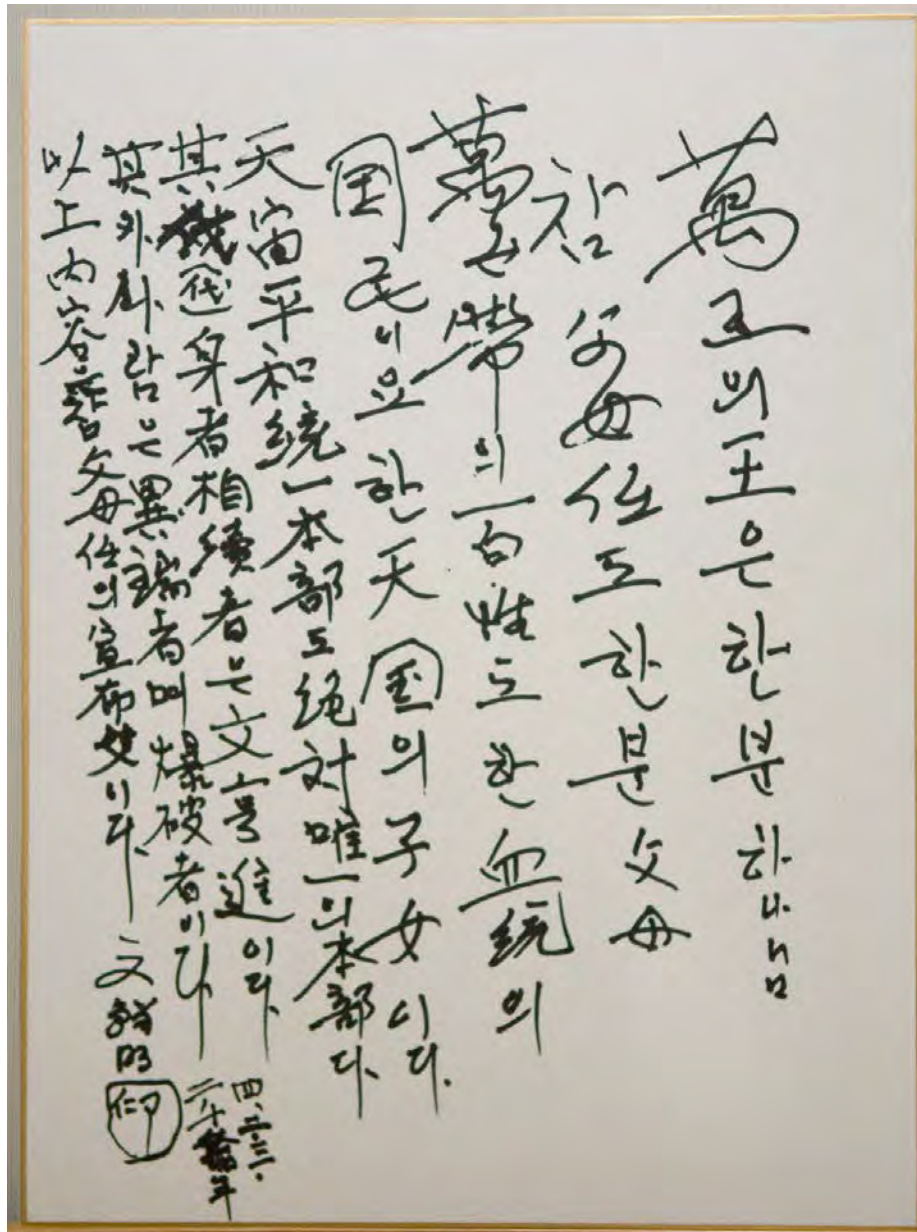 萬王의 王은 한분 하나님
참 父母任도 한분 父母
萬世帶의 百姓도 한 血統의
国民이요 한 天国의 子女이다.
天宙平和統一本部도 絶対唯一의 本部다.
其 身者相續者는 文亨進이다.
其外 사람은 異端者며 爆破者이다.
以上 內容은 참父母任의 宣布文이다. 文鮮明
印
四.二三.
二千 年